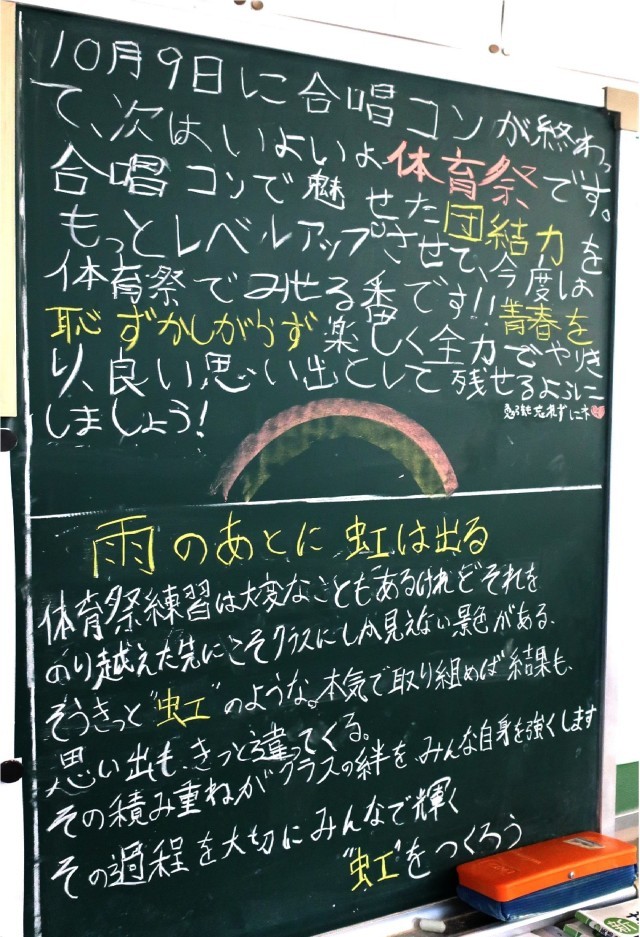 10月9日に合唱コンが終わっ
て、次はいよいよ体育祭です。
合唱コンで魅せた団結力を
もっとレベルアップさせて、今度は
体育祭でみせる番です!!青春を
恥ずかしがらず楽しく全力でやりき
り、良い思い出として残せるように
しましょう!
忘れずにネ
雨のあとに虹は出る
体育祭練習は大変なこともあるけれどそれを
のり越えた先にこそクラスにしか見えない景色がある、
そうきっと"虹"のような。本気で取り組めば結果も、
思い出も、きっと違ってくる。
その積み重ねがクラスの絆を、みんな自身を強くします
その過程を大切にみんなで輝く
"虹"をつくろう